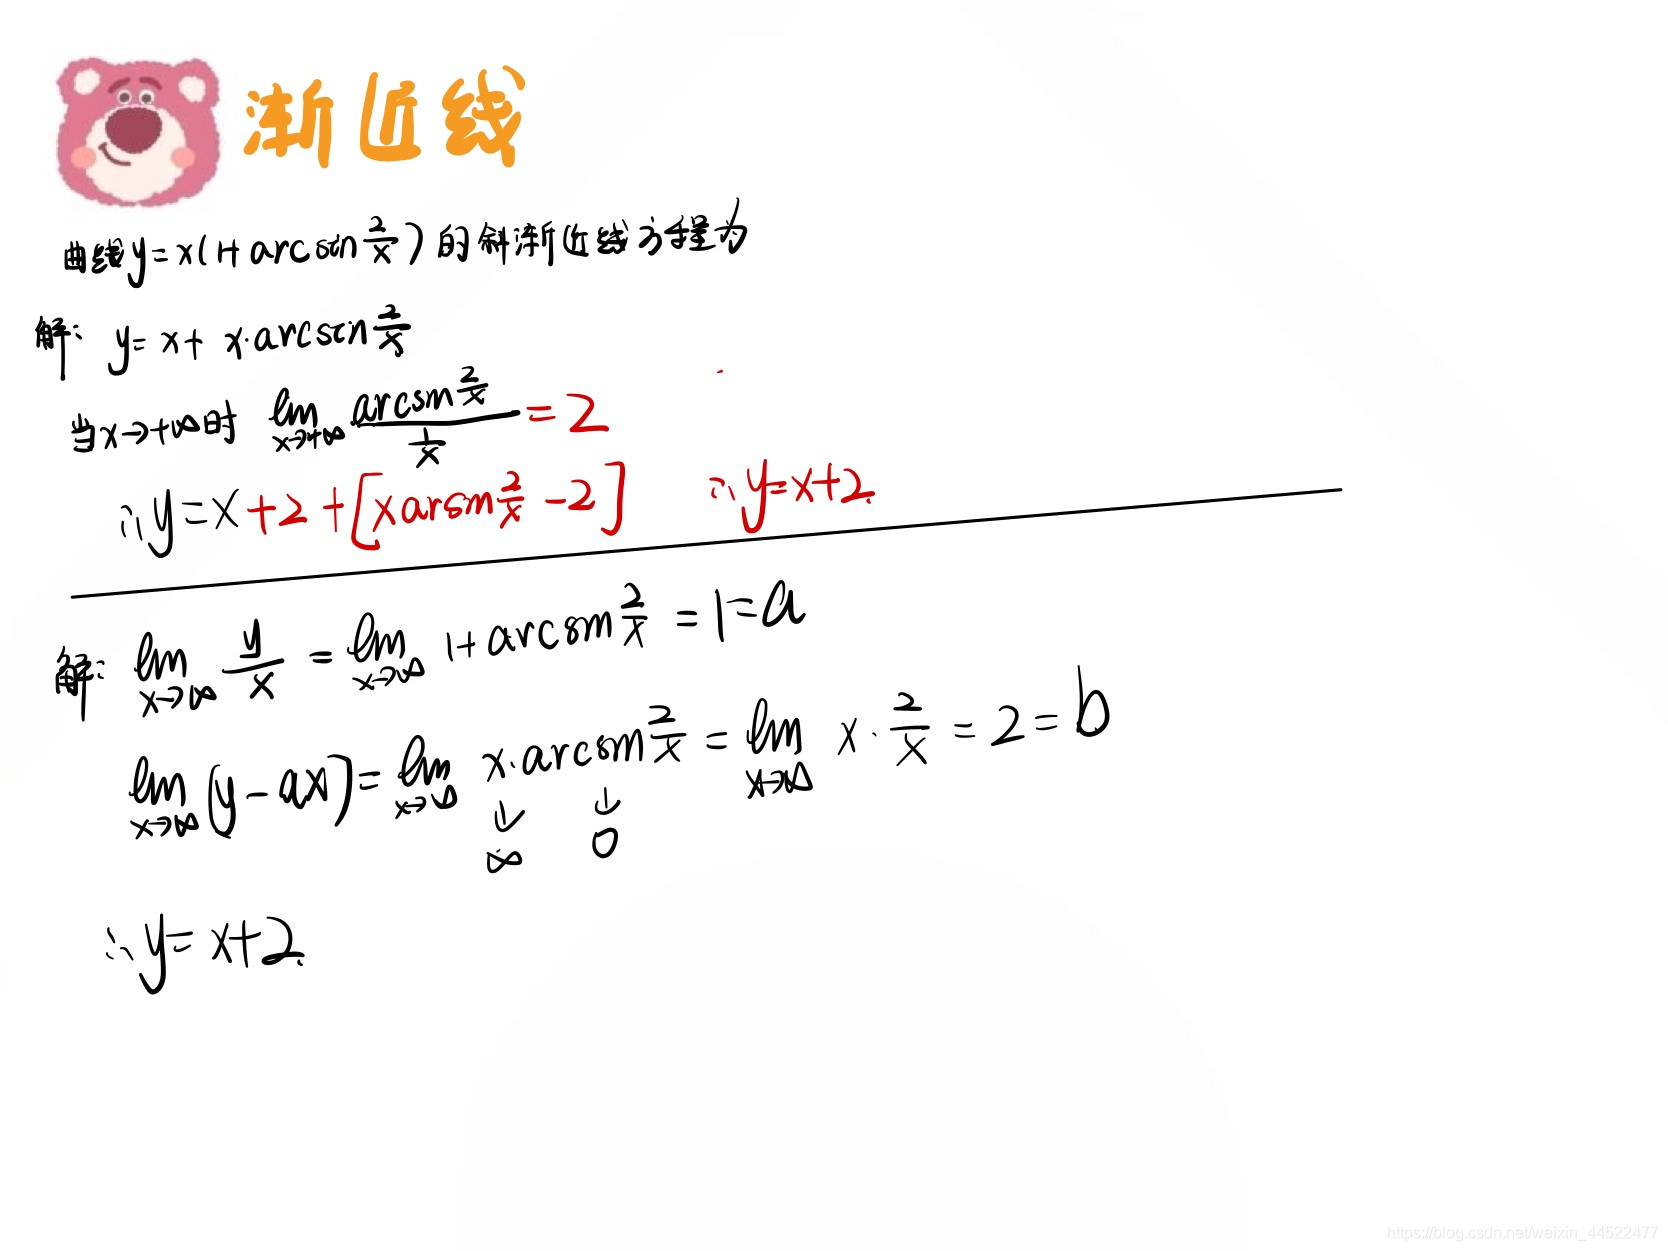 渐近线
曲线y=x(1+arcsin 2/x)的斜渐近线方程为
解: y=x+ x·arcsin 2/x
当x→+∞时 lim x→+∞ arcsin 2/x / 1/x = 2
∴y=x+2+[x arsin 2/x -2] ∴y=x+2.
解: lim x→∞ y/x = lim x→∞ 1+arcsin 2/x = 1=a
lim x→∞ (y-ax)= lim x→∞ x·arcsin 2/x = lim x→∞ x·2/x = 2 = b
↓ ↓
∞ 0
∴y=x+2.
https://blog.csdn.net/weixin_44522477